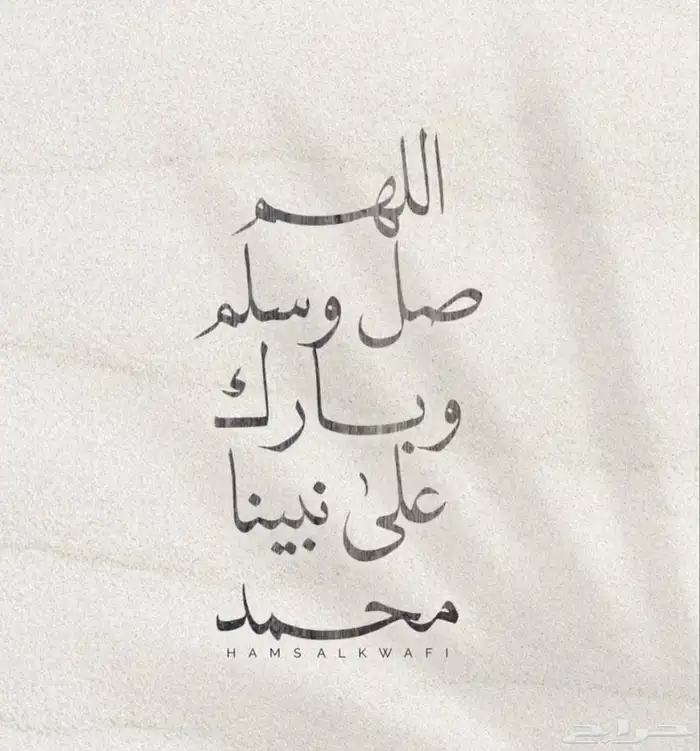 اللهم
صل وسلم
وبارك
علىٰ نبينا
محمد
HAMSALKWAFI
حراج